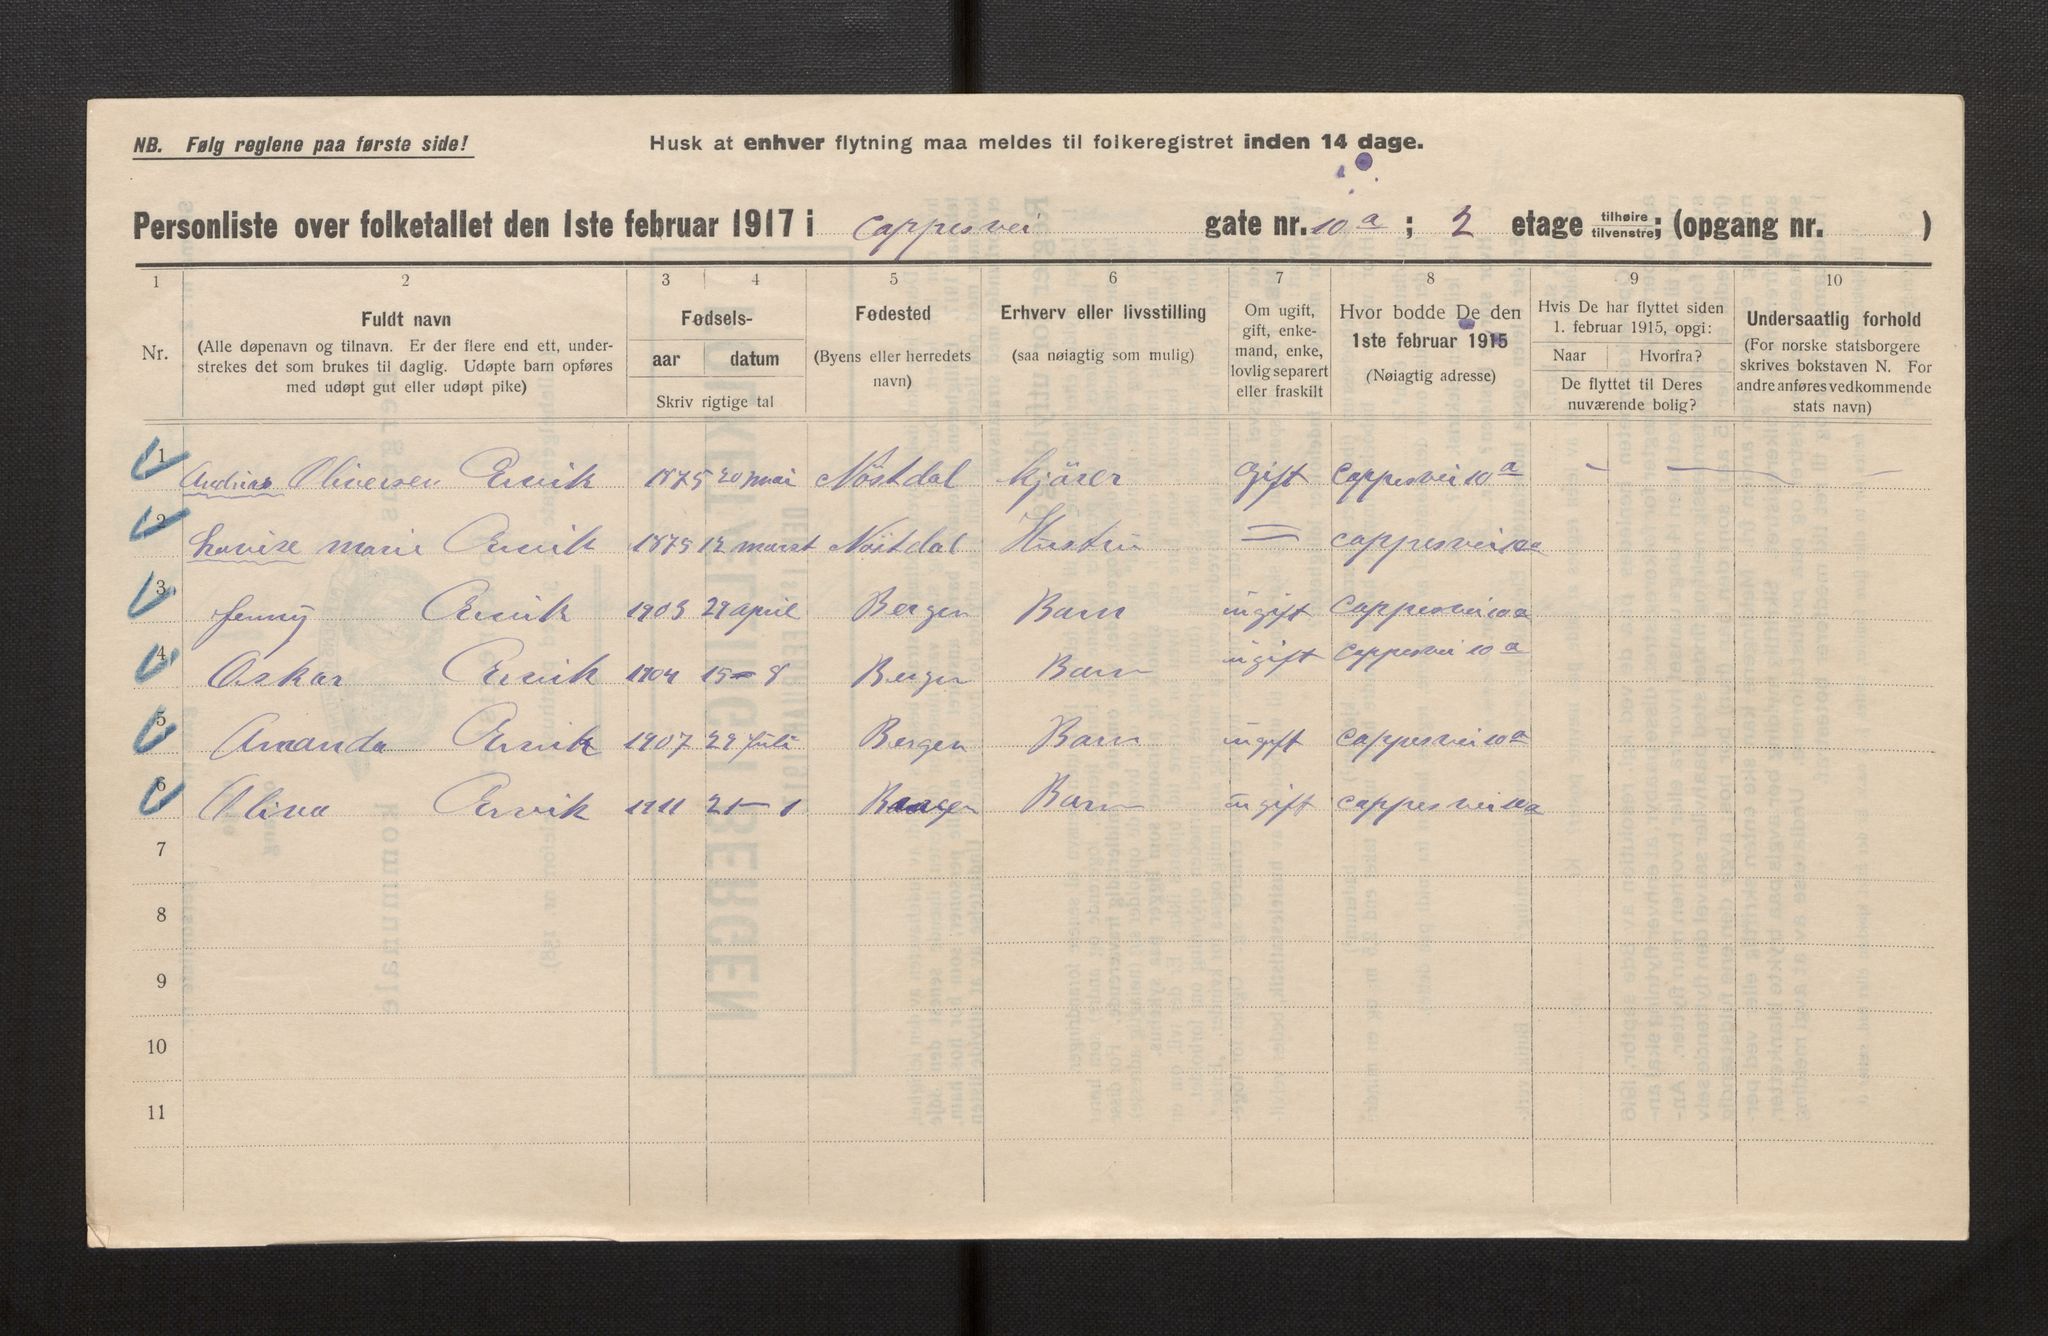 NB. Følg reglene paa første side!
Husk at enhver flytning maa meldes til folkeregistret inden 14 dage.
Personliste over folketallet den 1ste februar 1917 i Cappesvei gate nr. 10 a ; 2 etage tilhøire tilvenstre; (opgang nr. )
1 2 3 4 5 6 7 8 9 10
Nr.
Fuldt navn
(Alle døpenavn og tilnavn. Er der flere end ett, under-
strekes det som brukes til daglig. Udøpte barn opføres
med udøpt gut eller udøpt pike)
Fødsels-
aar datum
Skriv rigtige tal
Fødested
(Byens eller herredets
navn)
Erhverv eller livsstilling
(saa nøiagtig som mulig)
Om ugift,
gift, enke-
mand, enke,
lovlig separert
eller fraskilt
Hvor bodde De den
1ste februar 1915
(Nøiagtig adresse)
Hvis De har flyttet siden
1. februar 1915, opgi:
Naar Hvorfra?
De flyttet til Deres
nuværende bolig?
Undersaatlig forhold
(For norske statsborgere
skrives bokstaven N. For
andre anføres vedkommende
stats navn)
1 Andrias Oliversen Ervik 1875 20 mai Nöstdal kjörer Gift Cappesvei 10 a - — —
2 Lovise Marie Ervik 1875 12 marst Nöstdal Hustru = Cappesvei 10a
3 Jenny Ervik 1903 29 april Bergen Barn ugift Cappesvei 10a
4 Oskar Ervik 1904 15-8 Bergen Barn ugift Cappesvei 10 a
5 Amanda Ervik 1907 29 juli Bergen Barn ugift Cappesvei 10 a
6 Alina Ervik 1911 21-1 Bergen Barn ugift Cappesvei 10a
7
8
9
10
11